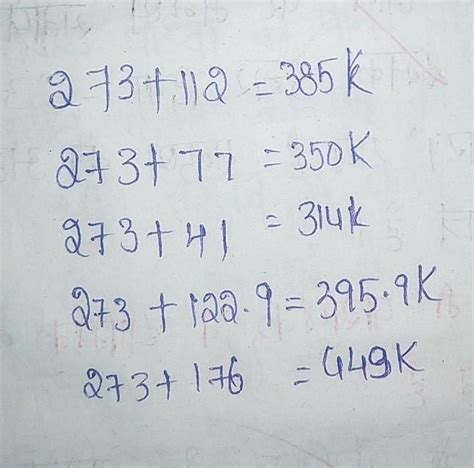 273+112 = 385K
273+77 = 350K
273+41 = 314K
273+122.9 = 395.9K
273+176 = 449K